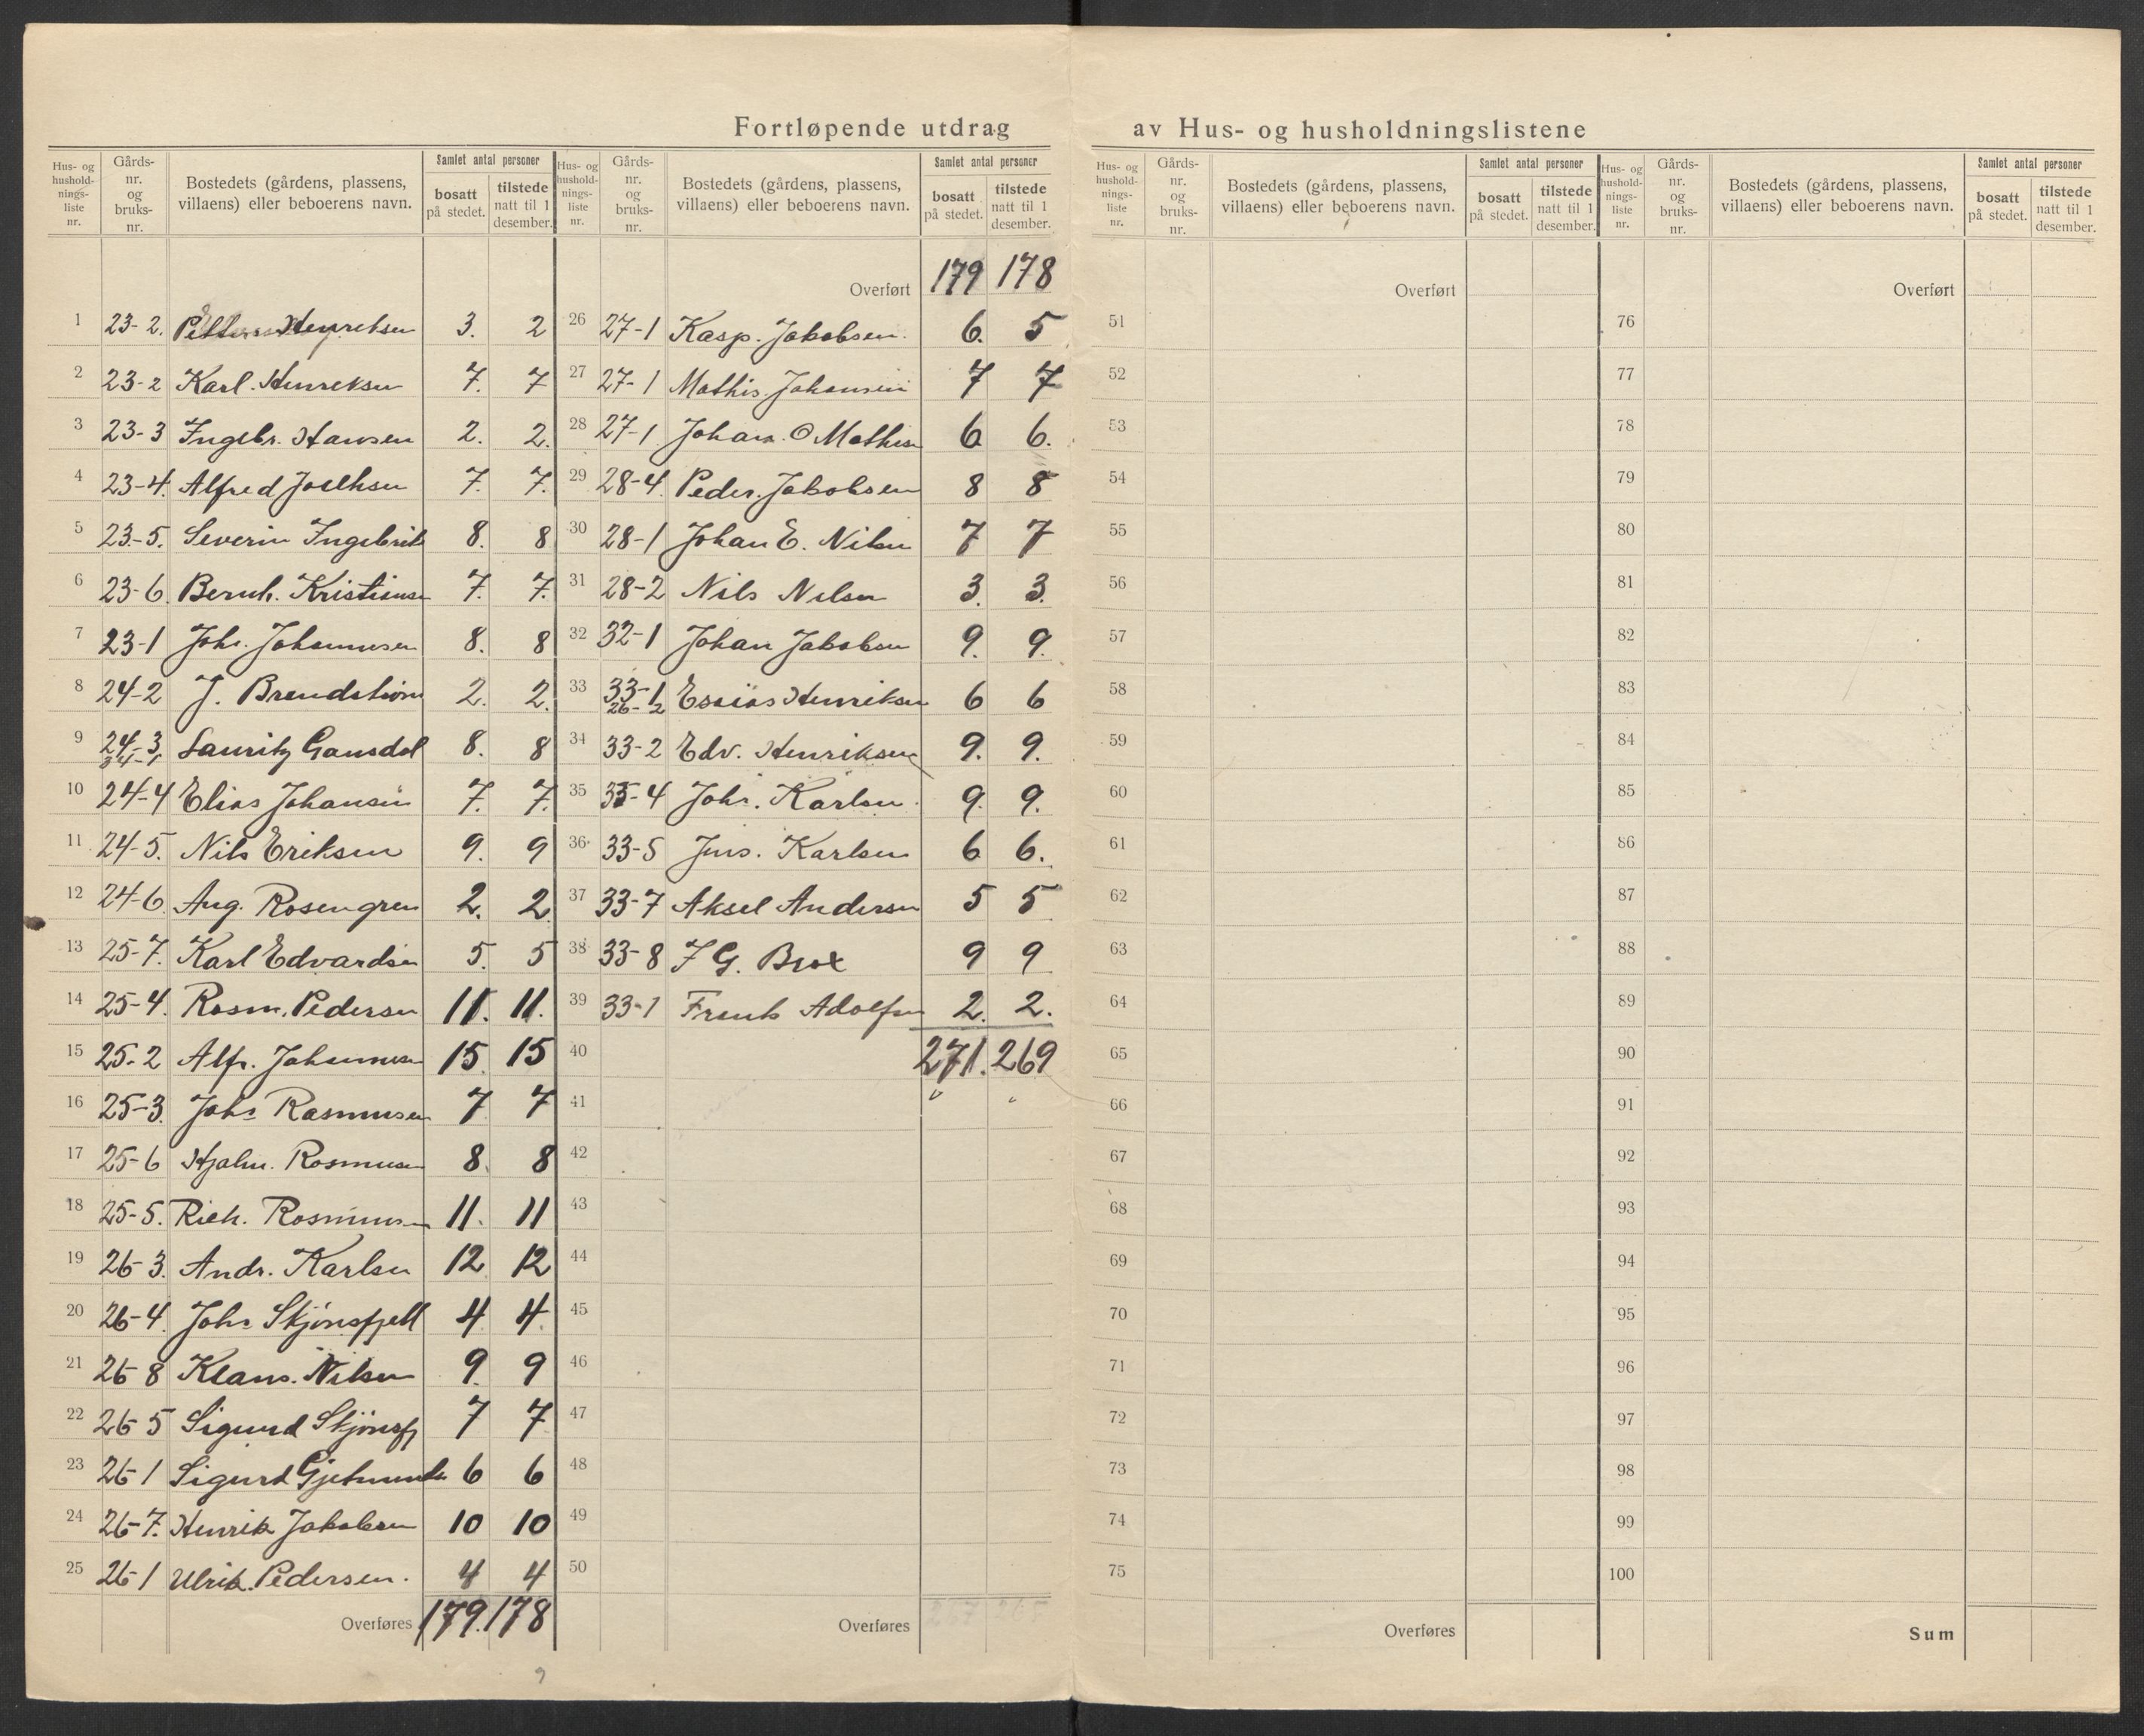 Fortløpende utdrag av Hus- og husholdningslistene
Hus- og hushold-nings-liste nr. | Gårds-nr. og bruks-nr. | Bostedets (gårdens, plassens, villaens) eller beboerens navn. | Samlet antal personer | bosatt på stedet. | tilstede natt til 1 desember.
1 23-2. Henriksen 3. 2
2 23-2 Karl. Henriksen 7. 7
3 23-3 Ingebr. Hansen 2. 2.
4 23-4. Alfred 7. 7.
5 23-5. Severin Ingebrik 8. 8
6 23-6. Bernh. Kristianse 7. 7.
7 23-1 Johs. Johannesen 8. 8
8 24-2 J. 2. 2.
9 24-3 Lauritz 8. 8
10 24-4 Elias Johansen 7. 7.
11 24-5. Nils Eriksen 9. 9
12 24-6 Aug. Rosengren 2. 2
13 25-7. Karl Edvardsen 5. 5
14 25-4. Rasm. Pedersen 11. 11.
15 25-2 Alfr. Johannesen 15 15
16 25-3. Johs Rasmusen 7 7
17 25-6 Hjalm. Rasmusen 8. 8
18 25-5. Rich. Rasmusen 11. 11
19 26-3. Andr. Karlsen 12 12
20 26-4. Johs Skjönsfjell 4 4.
21 26-8 Klaus. Nilsen 9. 9
22 26-5 Sigurd Skjönsfj 7 7
23 26-1 Sigurd 6 6
24 26-7. Henrik Jakobsen 10 10
25 26-1 Ulrik. Pedersen. 4 4
Overføres 179. 178
Hus- og hushold-nings-liste nr. | Gårds-nr. og bruks-nr. | Bostedets (gårdens, plassens, villaens) eller beboerens navn. | Samlet antal personer | bosatt på stedet. | tilstede natt til 1 desember.
Overført 179 178
26 27-1 Kasp. Jakobsen. 6. 5
27 27-1 Mathis. Johansen 7 7
28 27-1 Johan. O Mathisn 6 6.
29 28-4. Peder. Jakobsen 8 8
30 28-1 Johan E. Nilsen 7 7
31 28-2 Nils Nilsen 3. 3.
32 32-1 Johan Jakobsen 9. 9.
33 33-1 26-2 Esaias Henriksen 6 6
34 33-2 Edv. Henriksen 9. 9.
35 33-4 Johs. Karlsen. 9. 9.
36 33-5 Jens. Karlsen 6 6.
37 33-7 Aksel Andersen 5 5
38 33-8 J G. Brox 9 9
39 33-1 Adolfsn 2. 2.
40 271. 269
41
42
43
44
45
46
47
48
49
50
Overføres 267 265
Hus- og hushold-nings-liste nr. | Gårds-nr. og bruks-nr. | Bostedets (gårdens, plassens, villaens) eller beboerens navn. | Samlet antal personer | bosatt på stedet. | tilstede natt til 1 desember.
Overført
51
52
53
54
55
56
57
58
59
60
61
62
63
64
65
66
67
68
69
70
71
72
73
74
75
Overføres
Hus- og hushold-nings-liste nr. | Gårds-nr. og bruks-nr. | Bostedets (gårdens, plassens, villaens) eller beboerens navn. | Samlet antal personer | bosatt på stedet. | tilstede natt til 1 desember.
Overført
76
77
78
79
80
81
82
83
84
85
86
87
88
89
90
91
92
93
94
95
96
97
98
99
100
Sum